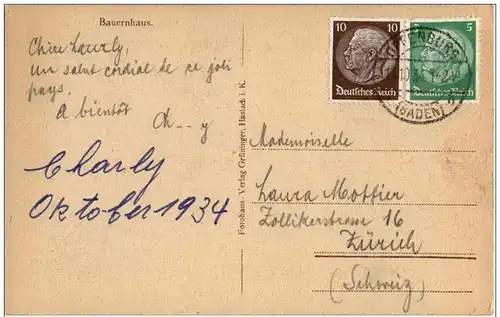 Bauernhaus.
Chère Laurly,
Un salut cordial de ce joli
pays.
A bientôt
Ch--y
Charly
Oktober 1934
Fotohaus-Verlag Grüninger, Haslach i. K.
10 10
Deutsches Reich
5
Deutsches Reich
OFFENBURG
(BADEN)
Mademoiselle
Laura Mottier
Zollikerstrasse 16
Zürich
(Schweiz)